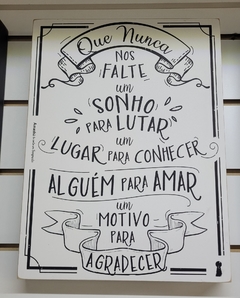 Que Nunca
NOS
FALTE
um
SONHO
PARA LUTAR
um
LUGAR PARA CONHECER
ALGUÉM PARA AMAR
um
MOTIVO
PARA
AGRADECER